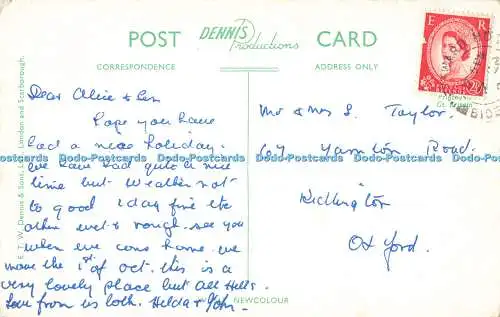 POST DENNIS Productions CARD
CORRESPONDENCE ADDRESS ONLY
E R
Dear Alice & Les
Hope you have
had a nice holiday.
we have had quite a nice
time but weather not
to good 1 day fine the
other wet & rough. see you
when we come home. we
move the 1st of oct. this is a
very lovely place but all Hills.
Love from us both. Hilda & John.
Mr & Mrs L. Taylor.
69 Yarnton Road.
Kidlington
Oxford.
Printed in
Gt. Britain
E. T. W. Dennis & Sons, London and Scarborough.
NEWCOLOUR
Dodo-Postcards Dodo-Postcards Dodo-Postcards Dodo-Postcards Dodo-Postcards Dodo-Postcards